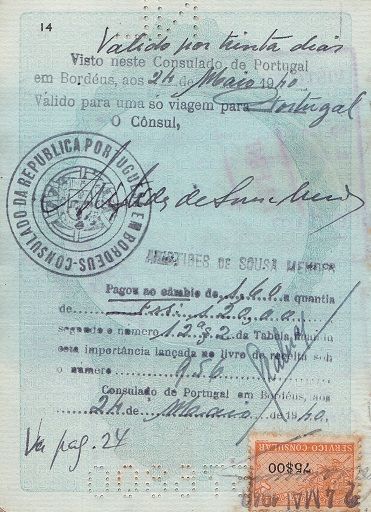 14
Valido por trinta dias
Visto neste Consulado de Portugal
em Bordéus, aos 24 de Maio 1940
Válido para uma so viagem para Portugal
O Cônsul,
CONSULADO DA REPUBLICA PORTUGUESA EM BORDEUS
Aristides de Sousa Mendes
ARISTIDES DE SOUSA MENDES
Pagou ao câmbio de 160 a quantia
de
segundo o número da Tabela
esta importância lançada no livro de receita sob
o numero 956
Consulado de Portugal em Bordéus, aos
24 de Maio de 1940.
Ver pag. 24
75$00
SERVIÇO CONSULAR
24 MAI 1940